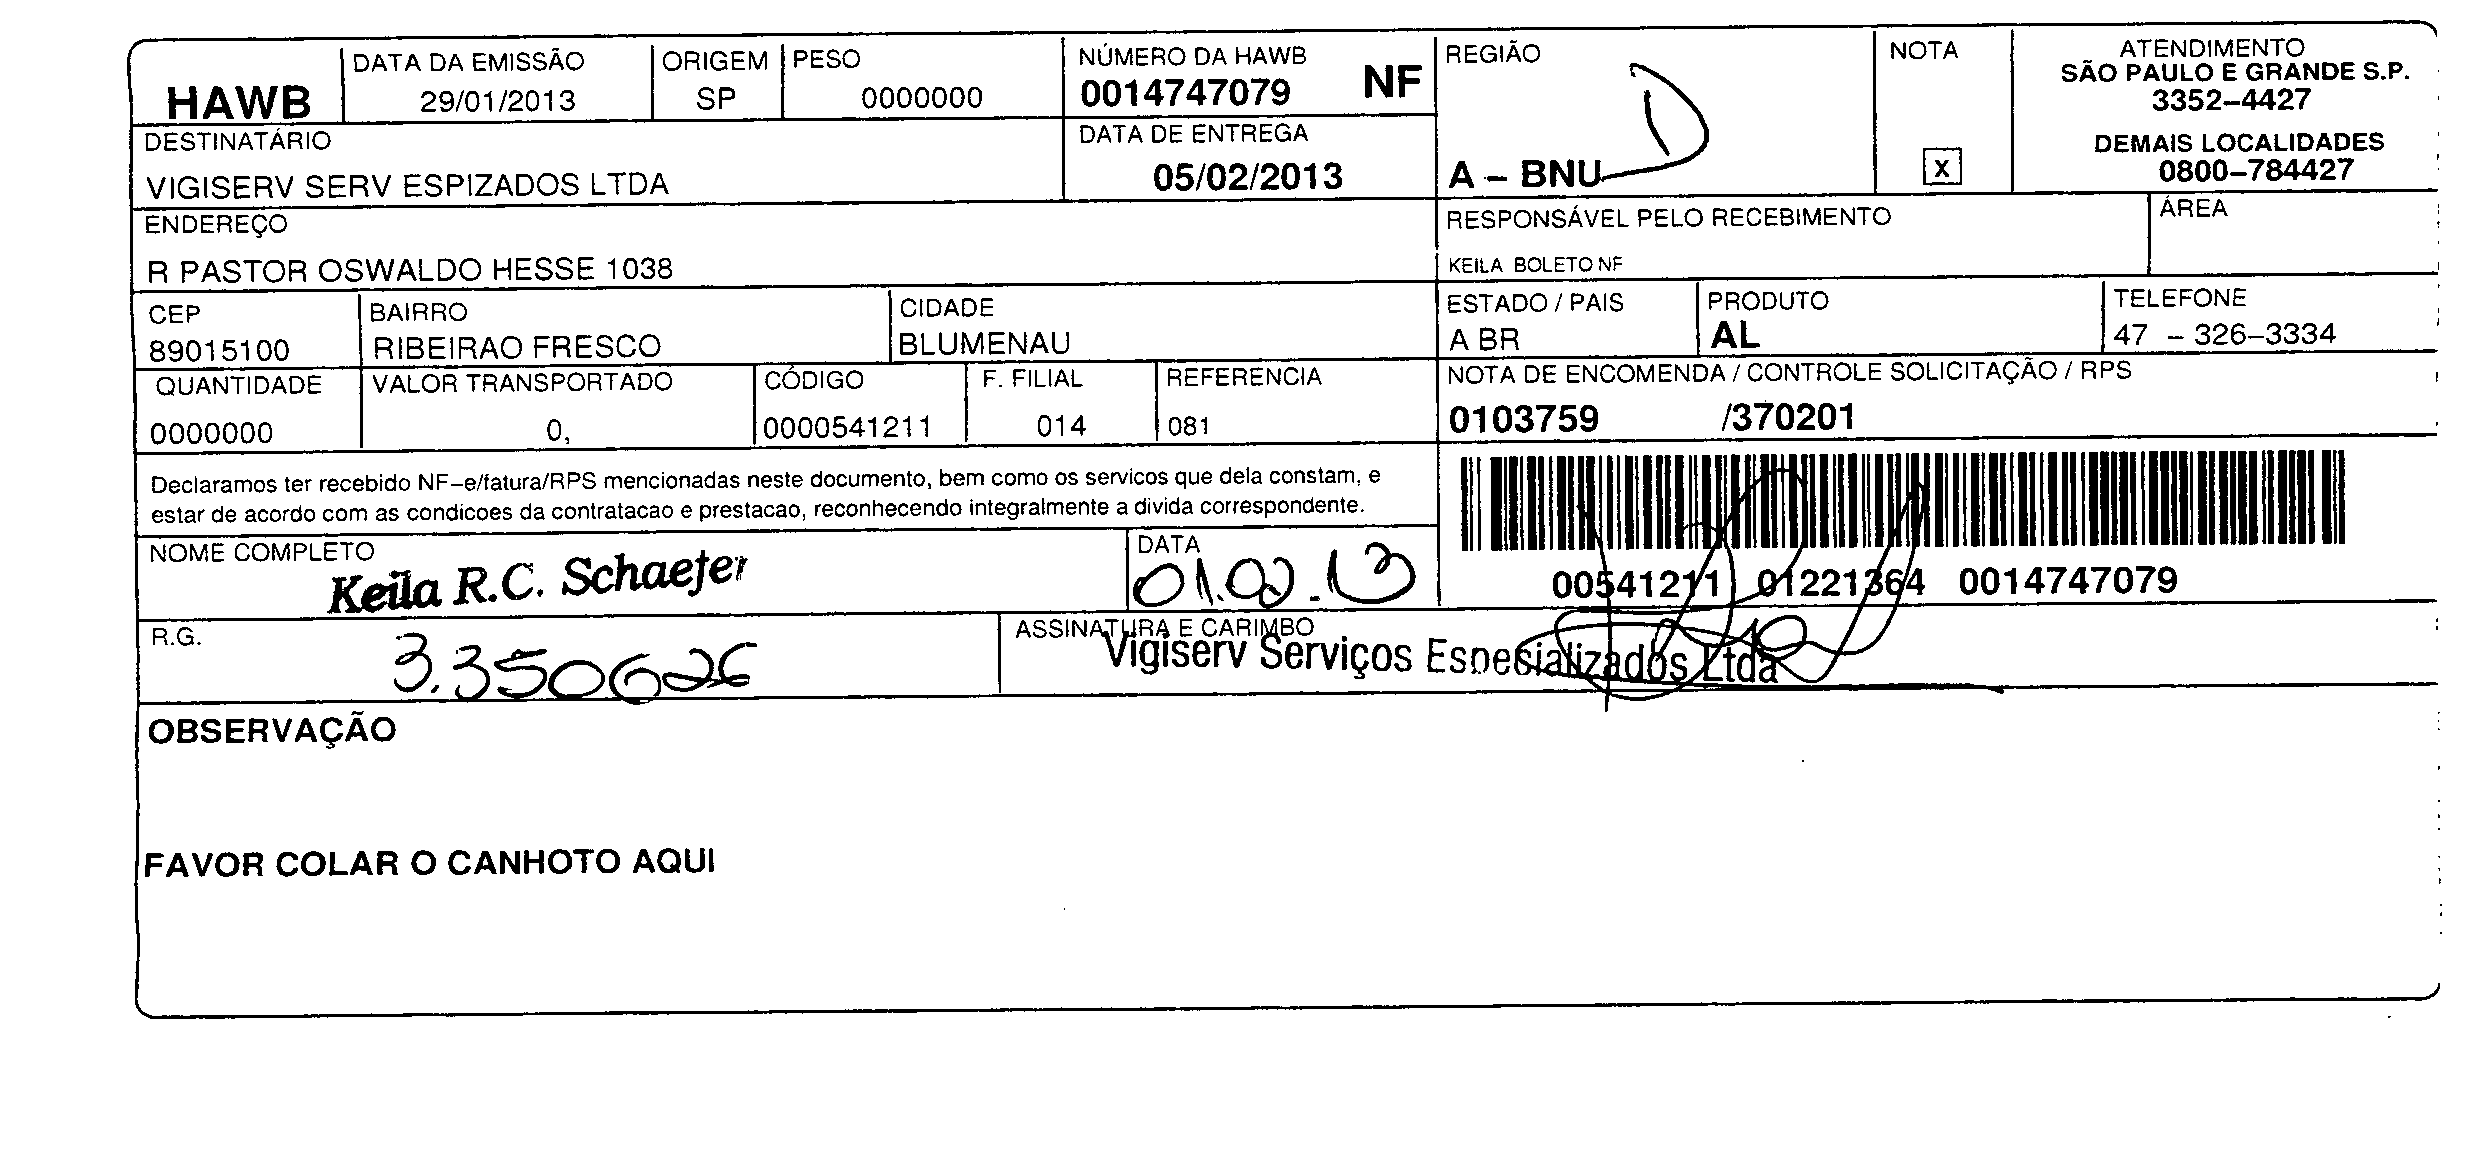 HAWB
DATA DA EMISSÃO
29/01/2013
ORIGEM
SP
PESO
0000000
NÚMERO DA HAWB
0014747079 NF
REGIÃO
A – BNU
D
NOTA
X
ATENDIMENTO
SÃO PAULO E GRANDE S.P.
3352–4427
DEMAIS LOCALIDADES
0800–784427
DESTINATÁRIO
VIGISERV SERV ESPIZADOS LTDA
DATA DE ENTREGA
05/02/2013
ENDEREÇO
R PASTOR OSWALDO HESSE 1038
RESPONSÁVEL PELO RECEBIMENTO
KEILA BOLETO NF
ÁREA
CEP
89015100
BAIRRO
RIBEIRAO FRESCO
CIDADE
BLUMENAU
ESTADO / PAIS
A BR
PRODUTO
AL
TELEFONE
47 – 326–3334
QUANTIDADE
0000000
VALOR TRANSPORTADO
0,
CÓDIGO
0000541211
F. FILIAL
014
REFERENCIA
081
NOTA DE ENCOMENDA / CONTROLE SOLICITAÇÃO / RPS
0103759 /370201
Declaramos ter recebido NF–e/fatura/RPS mencionadas neste documento, bem como os servicos que dela constam, e
estar de acordo com as condicoes da contratacao e prestacao, reconhecendo integralmente a divida correspondente.
NOME COMPLETO
Keila R.C. Schaefer
DATA
01.02.13
00541211 01221364 0014747079
R.G.
3.350626
ASSINATURA E CARIMBO
Vigiserv Serviços Especializados Ltda
OBSERVAÇÃO
FAVOR COLAR O CANHOTO AQUI